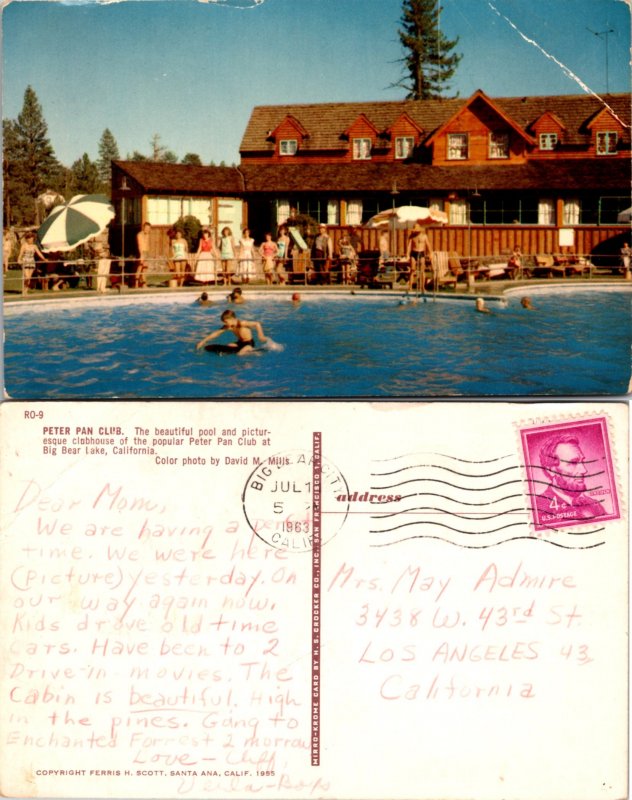 RO-9
PETER PAN CLUB. The beautiful pool and pictur-
esque clubhouse of the popular Peter Pan Club at
Big Bear Lake, California.
Color photo by David M. Mills
Dear Mom,
We are having a
time. We were here
(Picture) yesterday. On
our way again now.
Kids drove old time
Cars. Have been to 2
Drive-in-movies. The
Cabin is beautiful. High
in the pines. Gong to
Enchanted Forrest 2 morrow
Love - Cliff,
Veda - Boys
COPYRIGHT FERRIS H. SCOTT, SANTA ANA, CALIF. 1955
MIRRO-KROME CARD BY H. S. CROCKER CO., INC. SAN FRANCISCO 1, CALIF.
BIG BEAR CITY
JUL 1
5
1963
CALIF
address
4¢
U.S. POSTAGE
Mrs. May Admire
3438 W. 43rd St.
LOS ANGELES 43,
California